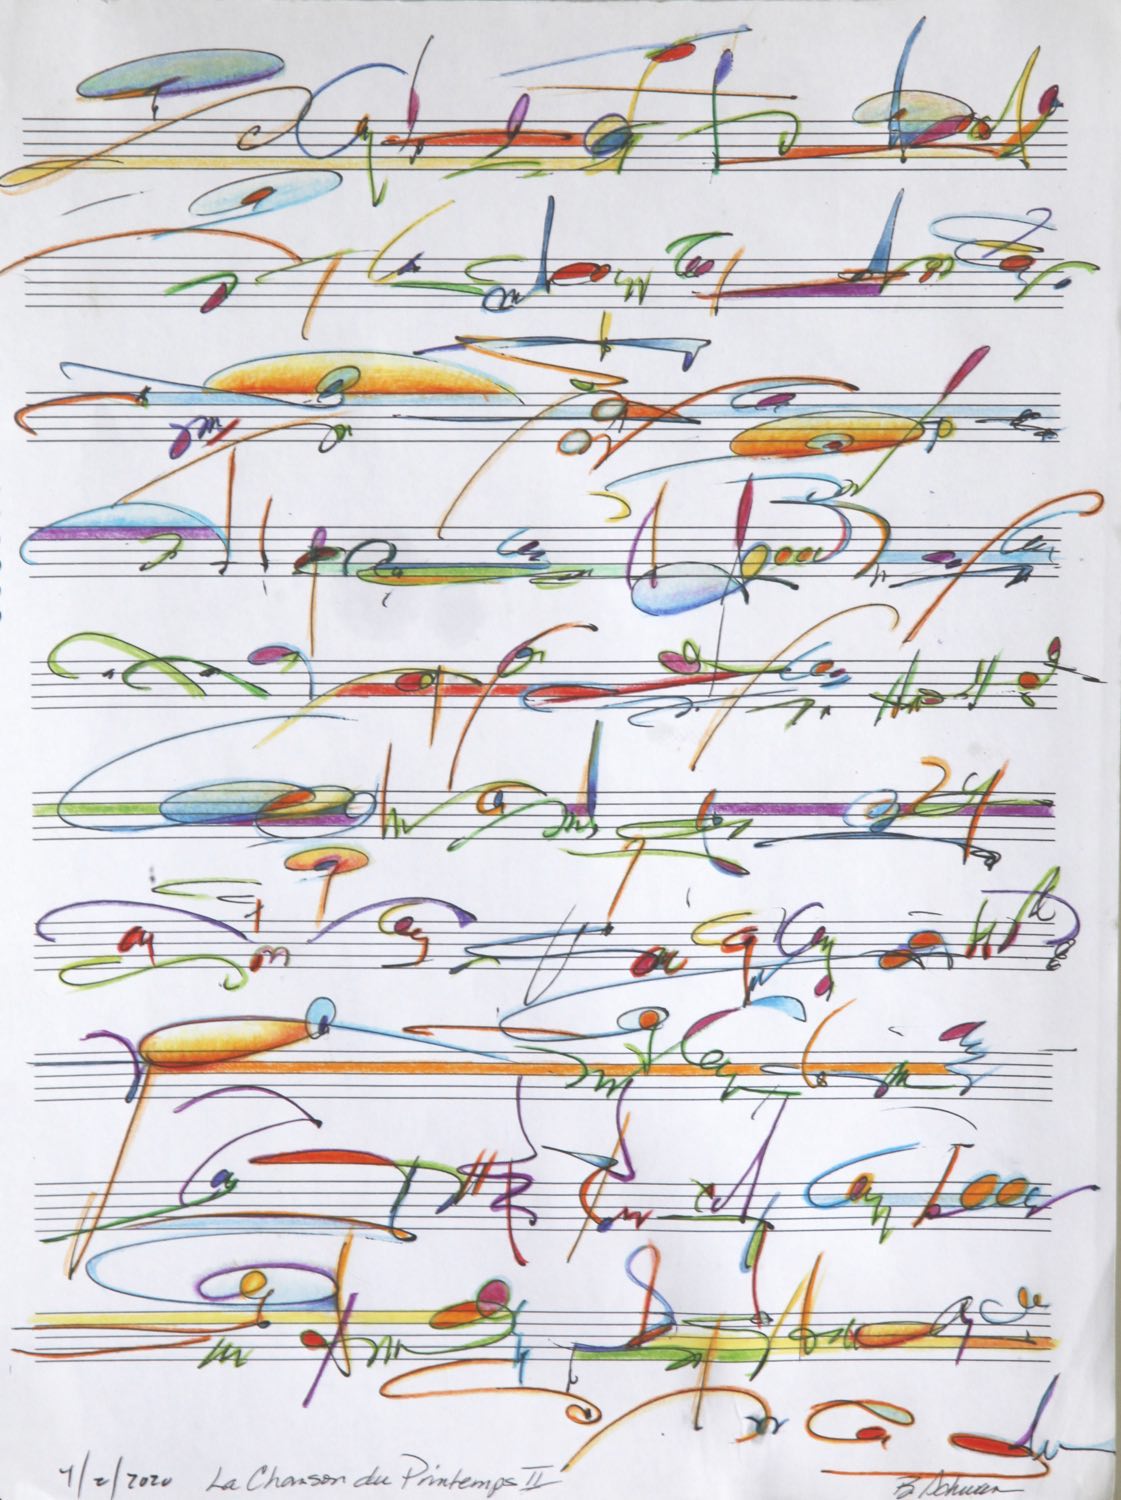 4/2/2020 La Chanson du Printemps II